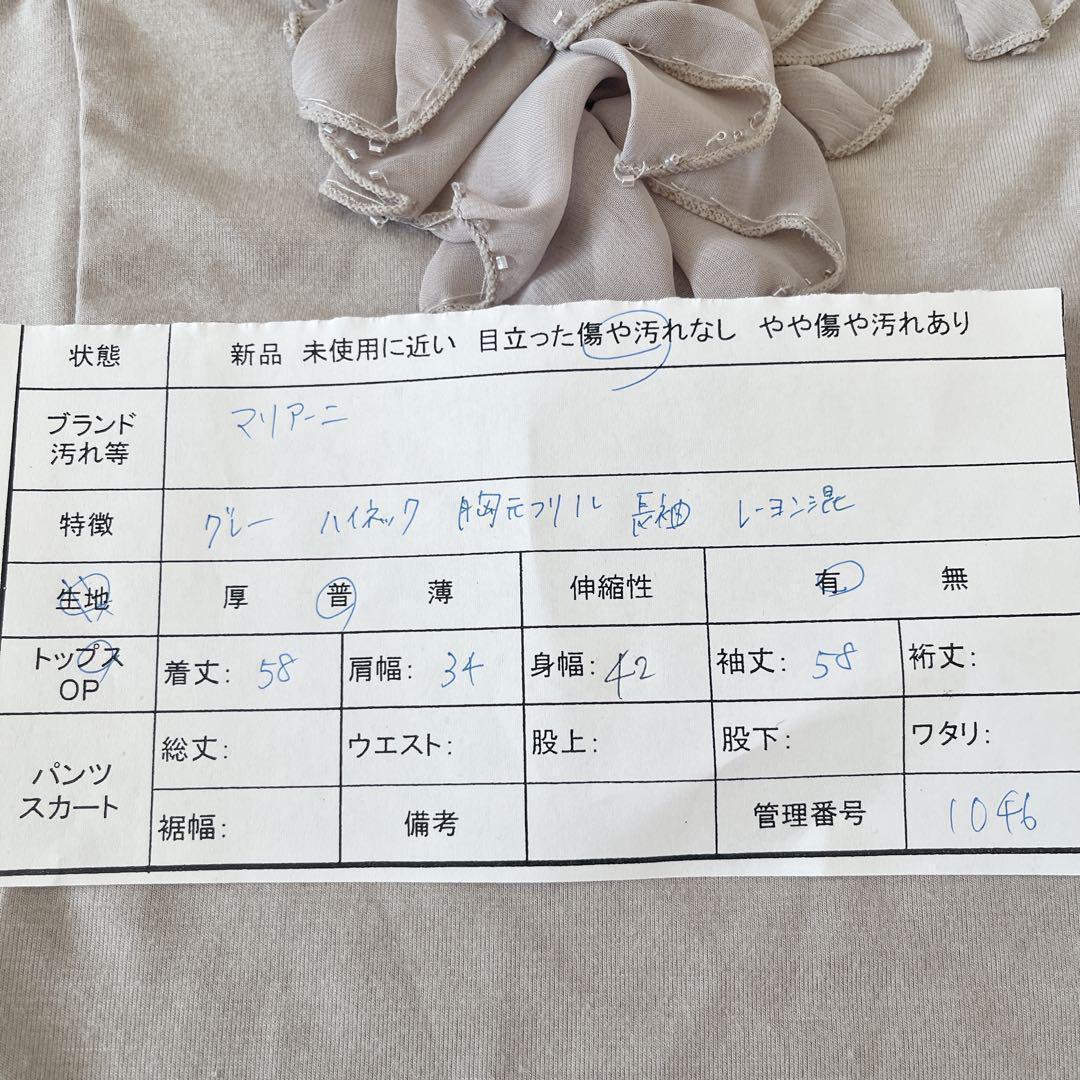 状態 新品 未使用に近い 目立った傷や汚れなし やや傷や汚れあり
ブランド マリアーニ
汚れ等
特徴 グレー ハイネック 胸元フリル 長袖 レーヨン混
生地 厚 普 薄 伸縮性 有 無
トップス 着丈: 58 肩幅: 34 身幅: 42 袖丈: 58 裄丈:
OP
パンツ 総丈: ウエスト: 股上: 股下: ワタリ:
スカート 裾幅: 備考 管理番号 1046